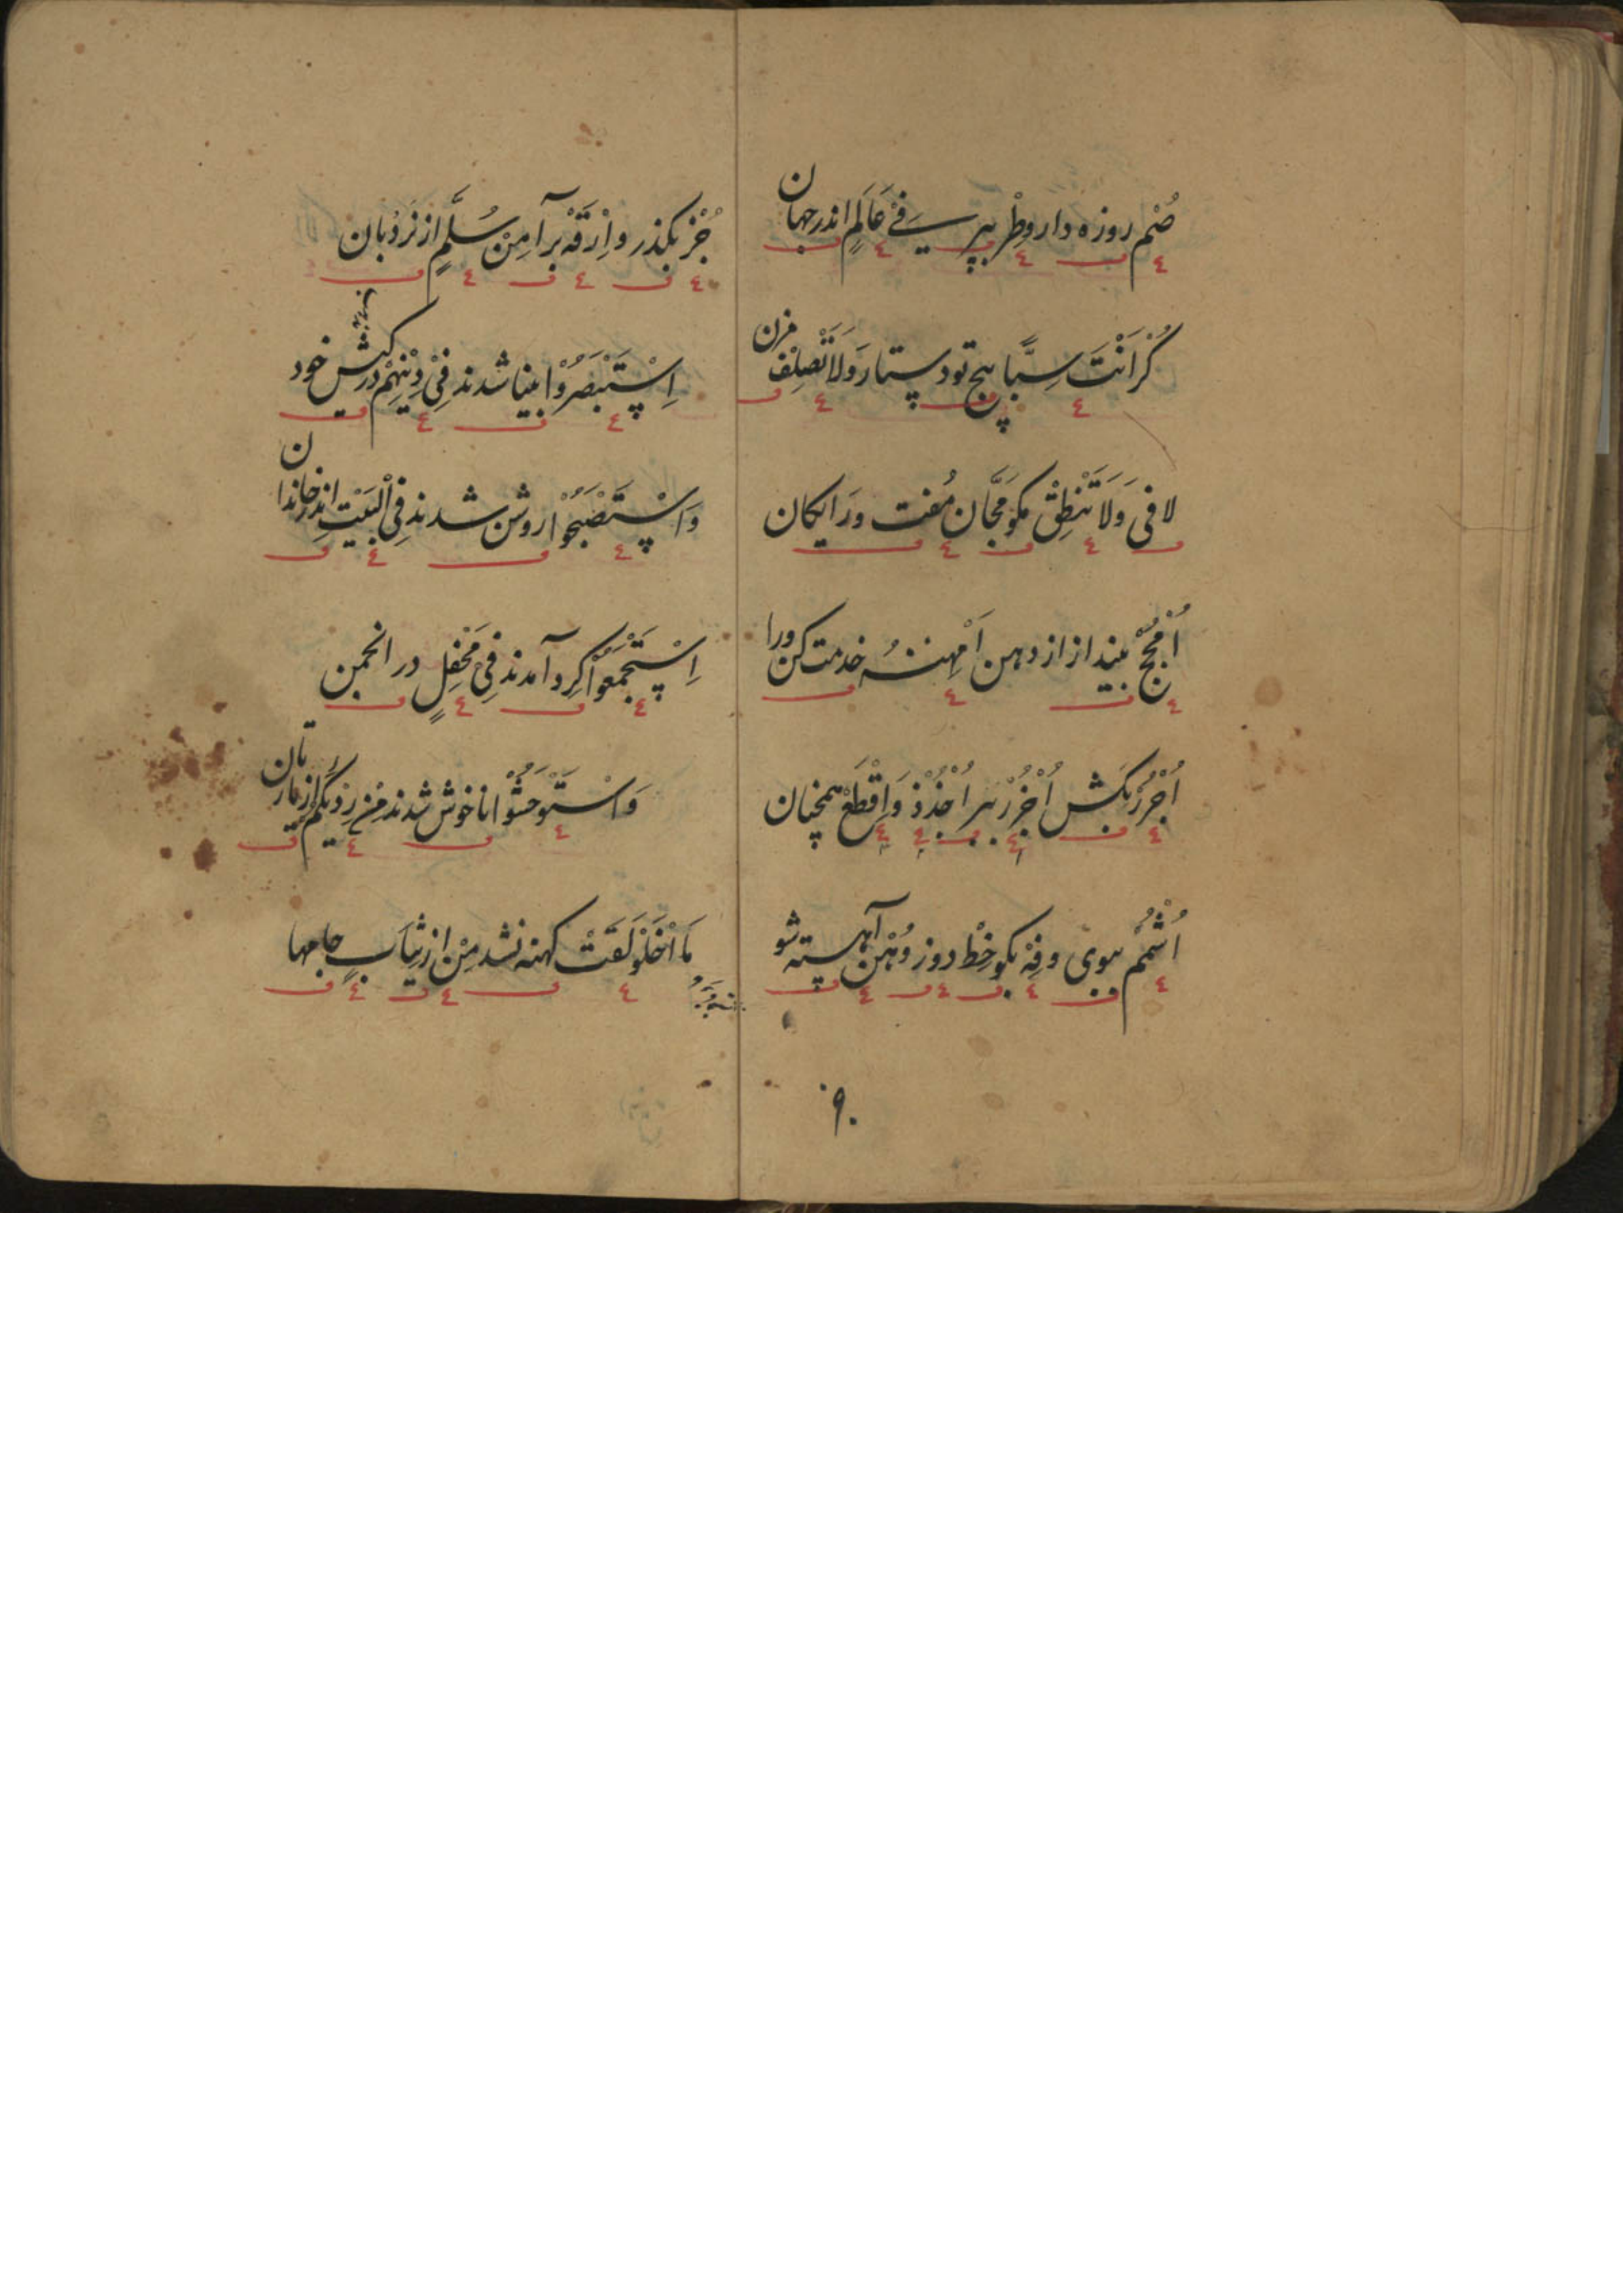 صُمْ روزه دار وطِرْ بپر سے فِیْ عَالَمٍ اندر جهان
كُرْ اَنْتَ سِبًّا پیچ تو دستار وَلَا تَصْلِفْ مزن
لافی وَلَا تَنْطِقْ مکو مَجَّان مُفت ورَایکان
اُمْجُجْ بینداز از دهن اُمْهُنْهُ خدمت کن ورا
اُجْرُرْ بکَش اُخْرُزْ ببر اُجْذُذْ وَاِقْطَعْ همچنان
اُشْمُمْ ببوی وفِهْ بکو خِطْ دوز وُهْن آهسته شو
۹۰
جُزْ بکذر واِرْقَهْ برآ مِنْ سُلَّمٍ از نَرْدُبان
اِسْتَبْصَرُوْا بینا شدند فِیْ دِیْنِهِمْ در کیش خود
وَاسْتَصْبَحُوْا روشن شدند فِی الْبَیْتِ اندر خاندان
اِسْتَجْمَعُوْا کِرد آمدند فِی مَحْفِلٍ در انجمن
وَاسْتَوْحَشُوْا ناخوش شدند مِنْ رِدْیِکُمْ از یارتان
مَا اخْلَوْلَقَتْ کهنه نشد مِنْ از ثِیَابٍ جامها